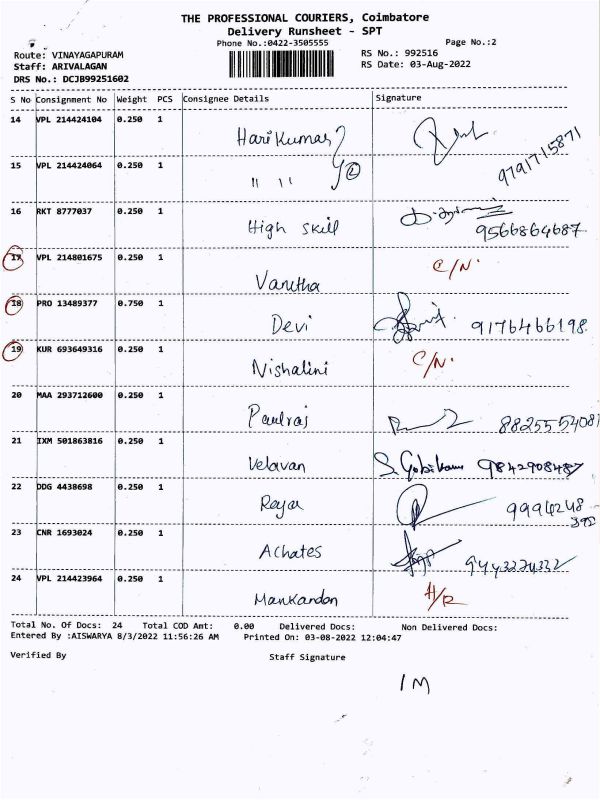 THE PROFESSIONAL COURIERS, Coimbatore
Delivery Runsheet - SPT
Phone No.:0422-3505555 Page No.:2
Route: VINAYAGAPURAM RS No.: 992516
Staff: ARIVALAGAN RS Date: 03-Aug-2022
DRS No.: DCJB99251602
S No Consignment No Weight PCS Consignee Details Signature
14 VPL 214424104 0.250 1 Harikumar
9791715871
15 VPL 214424064 0.250 1 " " 2
16 RKT 8777037 0.250 1 High Skill 9566864687
17 VPL 214801675 0.250 1 Vanitha C/N.
18 PRO 13489377 0.750 1 Devi 9176466198
19 KUR 693649316 0.250 1 Nishalini C/N.
20 MAA 293712600 0.250 1 Paulraj 8825554081
21 IXM 501863816 0.250 1 Velavan 9842908487
22 DDG 4438698 0.250 1 Raja 9994248
392
23 CNR 1693024 0.250 1 Achates
24 VPL 214423964 0.250 1 Mankandan
Total No. Of Docs: 24 Total COD Amt: 0.00 Delivered Docs: Non Delivered Docs:
Entered By :AISWARYA 8/3/2022 11:56:26 AM Printed On: 03-08-2022 12:04:47
Verified By Staff Signature
1M